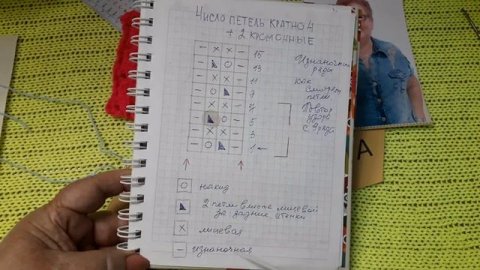 ЧИСЛО ПЕТЕЛЬ КРАТНО 4
+ 2 КРОМОЧНЫЕ
— × × — 15
— ◣ ○ — 13
— × × — 11
— ○ ◣ — 7
— × × — 7
— ◣ ○ — 5
— × × — 3
— ○ ◣ — 1 ←
Изнаночные
ряды
как
смотрят
петли
Повтор
узора
с 1 ряда
○ накид
◣ 2 петли вместе лицевой
за задние стенки
× лицевая
— изнаночная
А